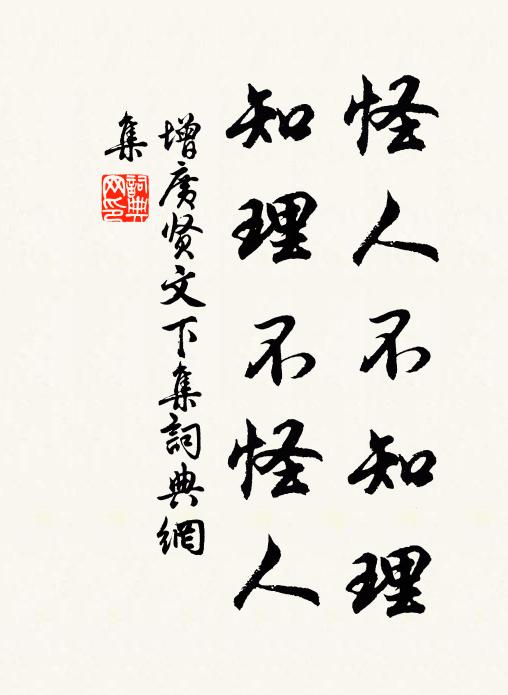 怪人不知理
知理不怪人
增廣贤文下集詞典網
集
詞典
网印